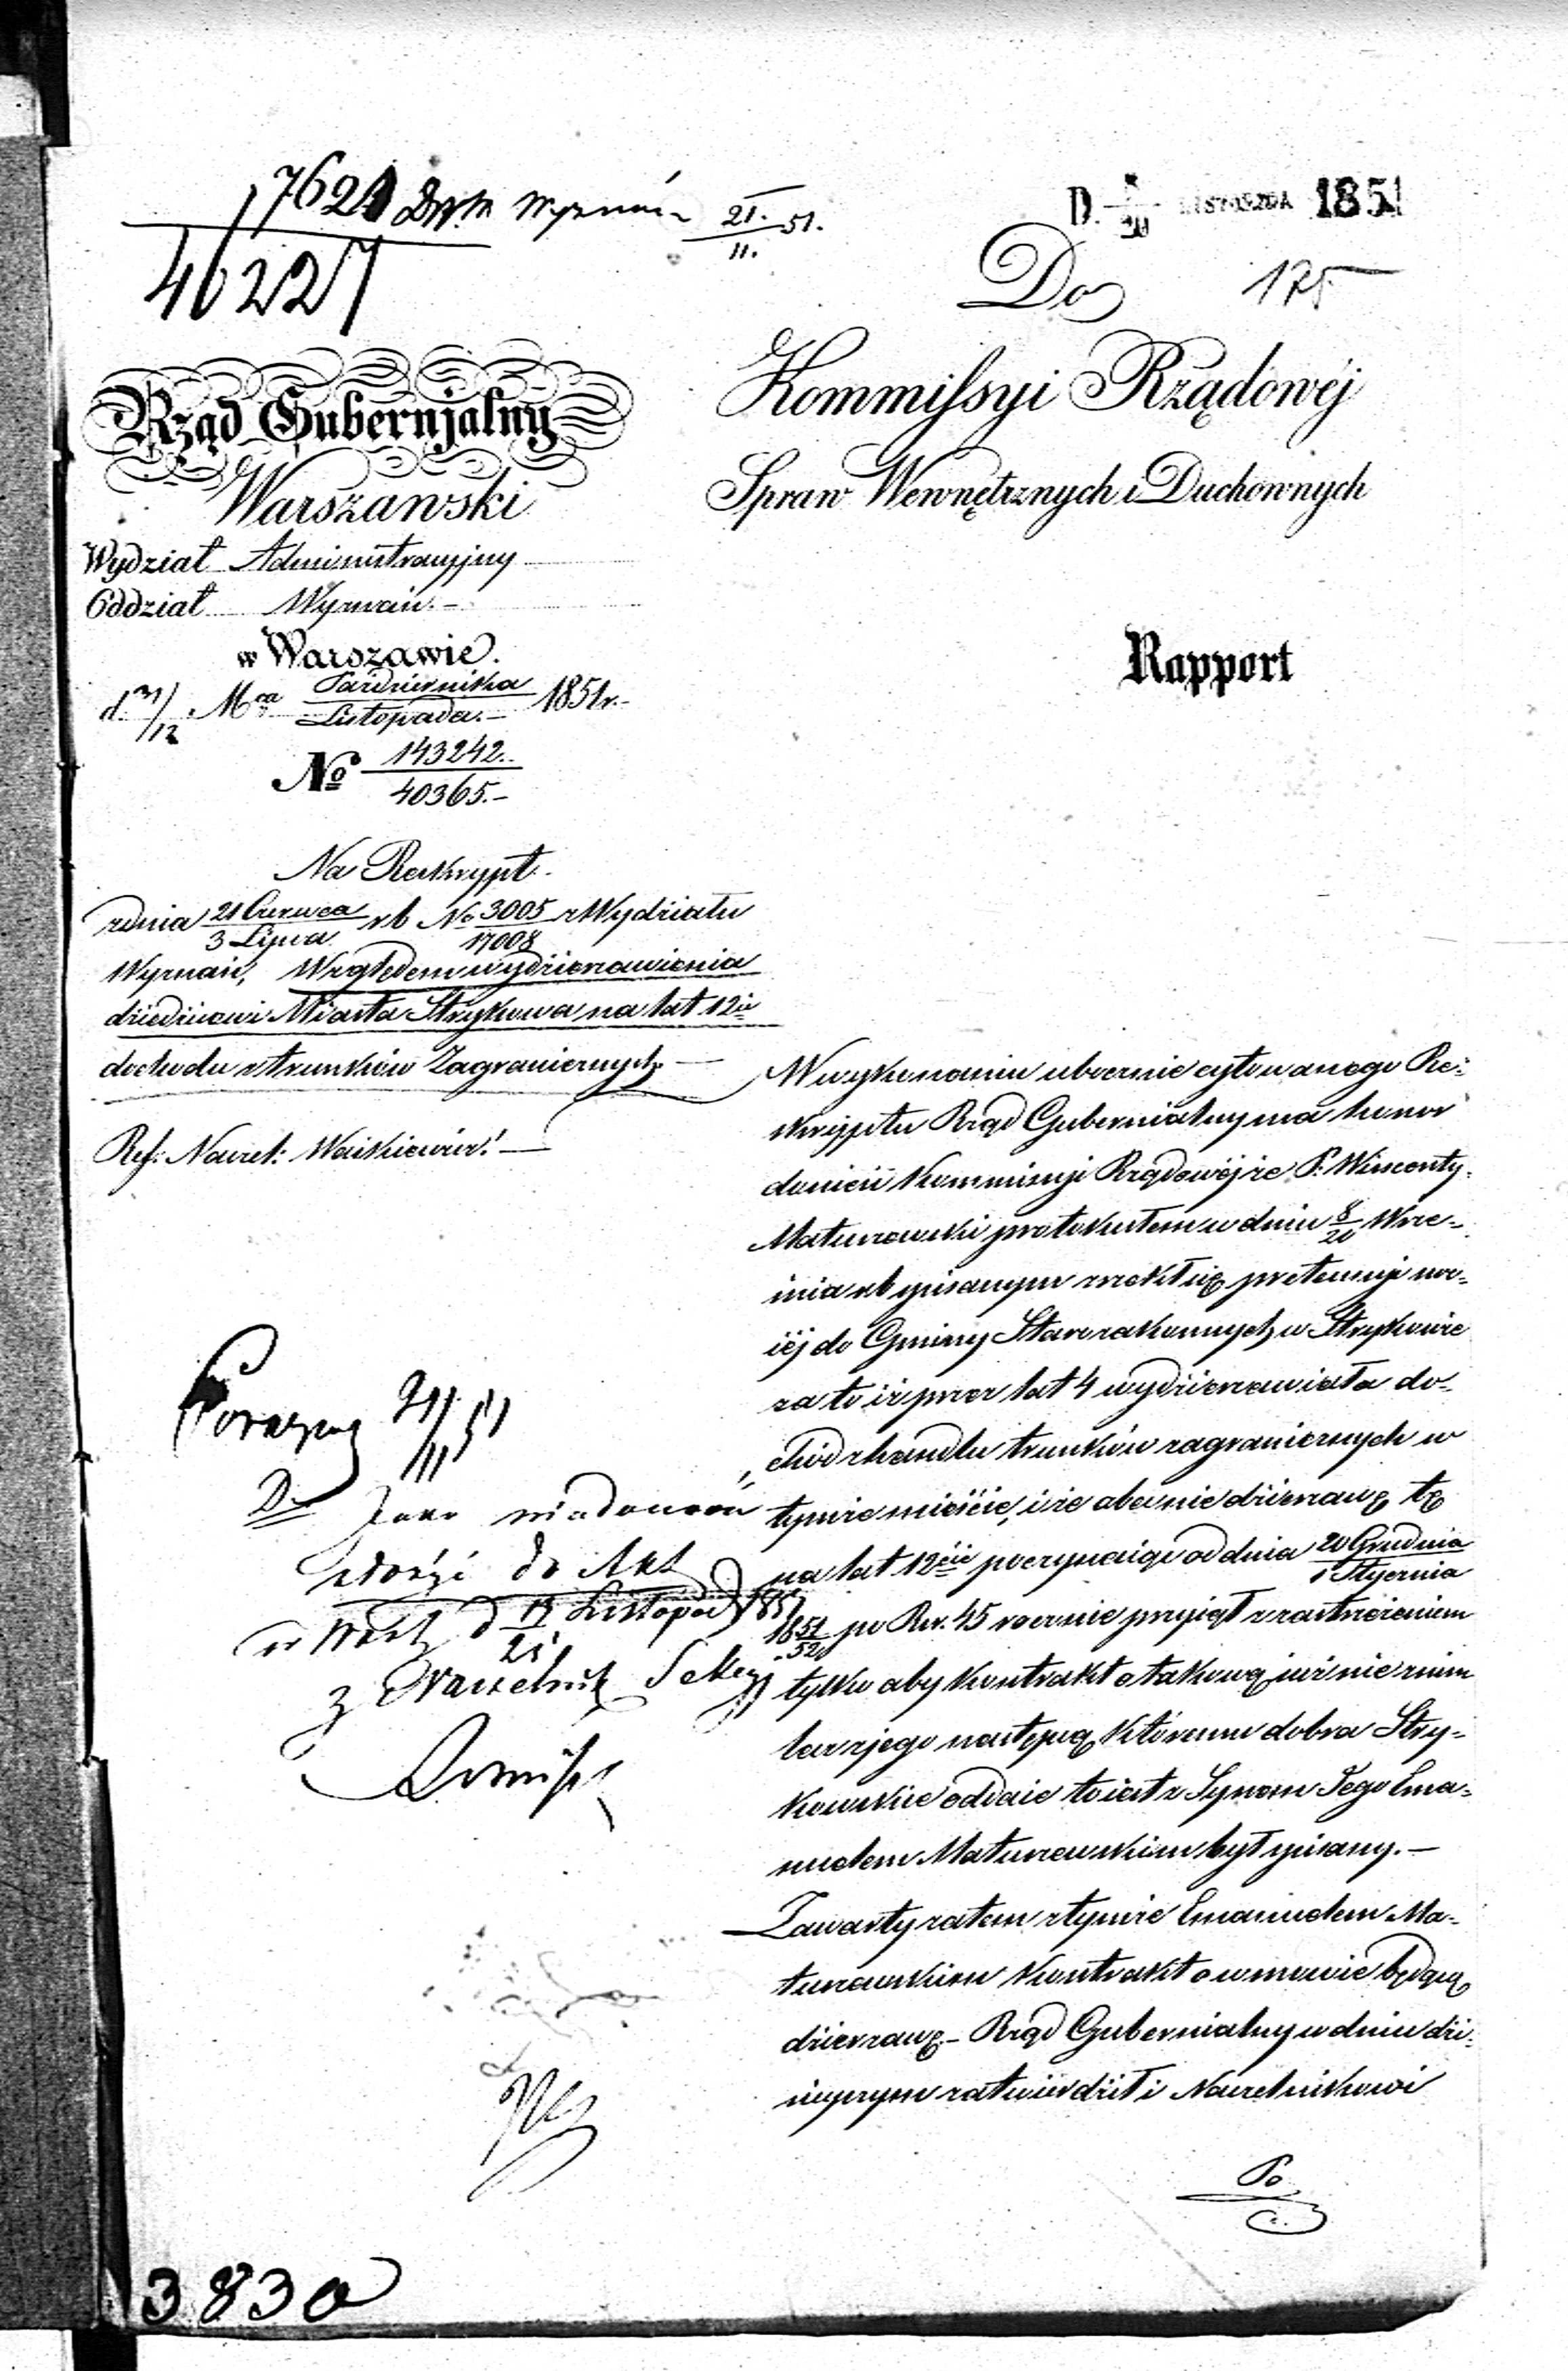 17621 Dyr. Wyznań 21./11. 51.
46227
D. 8/20 LISTOPADA 1851
175
Do
Kommissyi Rządowéj
Spraw Wewnętrznych i Duchownych
Rząd Gubernjalny
Warszawski
Wydział Administracyjny
Oddział Wyznań.-
w Warszawie.
d. 31/12 Mca Października/Listopada.- 1851 r.-
No 143242./40365.-
Rapport
Na Reskrypt
z dnia 21 Czerwca/3 Lipca r b No 3005/17008 z Wydziału
Wyznań, Względem wydzierżawienia
dziedzicowi Miasta Strykowa na lat 12ie
dochodu z trunków Zagranicznych -
Ref: Naczel: Waśkiewicz! -
W wykonaniu ubocznie cytowanego Re-
skryptu Rząd Gubernialny ma honor
donieść Kommissyi Rządowéj że P. Wincenty
Maturowski protokułem w dniu 8/20 Wrze-
śnia r b spisanym zrzekł się pretensyi swo-
iéj do Gminy Starozakonnych w Strykowie
za to iż przez lat 4 wydzierżawiała do-
chód z handlu trunków zagranicznych w
tymże mieście, i że obecnie dzierżawę tę
na lat 12ście poczynaiąc od dnia 20 Grudnia/1 Stycznia
18 51/52 po Rsr. 45 rocznie przyiął z zastrzeżeniem
tylko aby kontrakt o takową iuż nie z nim
lecz z jego następcą któremu dobra Stry-
kowskie oddaie to iest z Synem Jego Ema-
nuelem Maturowskim był spisany.-
Zawarty zatem z tymże Emanuelem Ma-
turowskim kontrakt o w mowie będącą
dzierżawę - Rząd Gubernialny w dniu dzi-
sieyszym zatwierdził i Naczelnikowi
Po
21/11 51
D. Jako wiadomość
złożyć do Akt
w Warsz d 13/25 Listopad 1851
z Naczelnik Sekcyi
3830